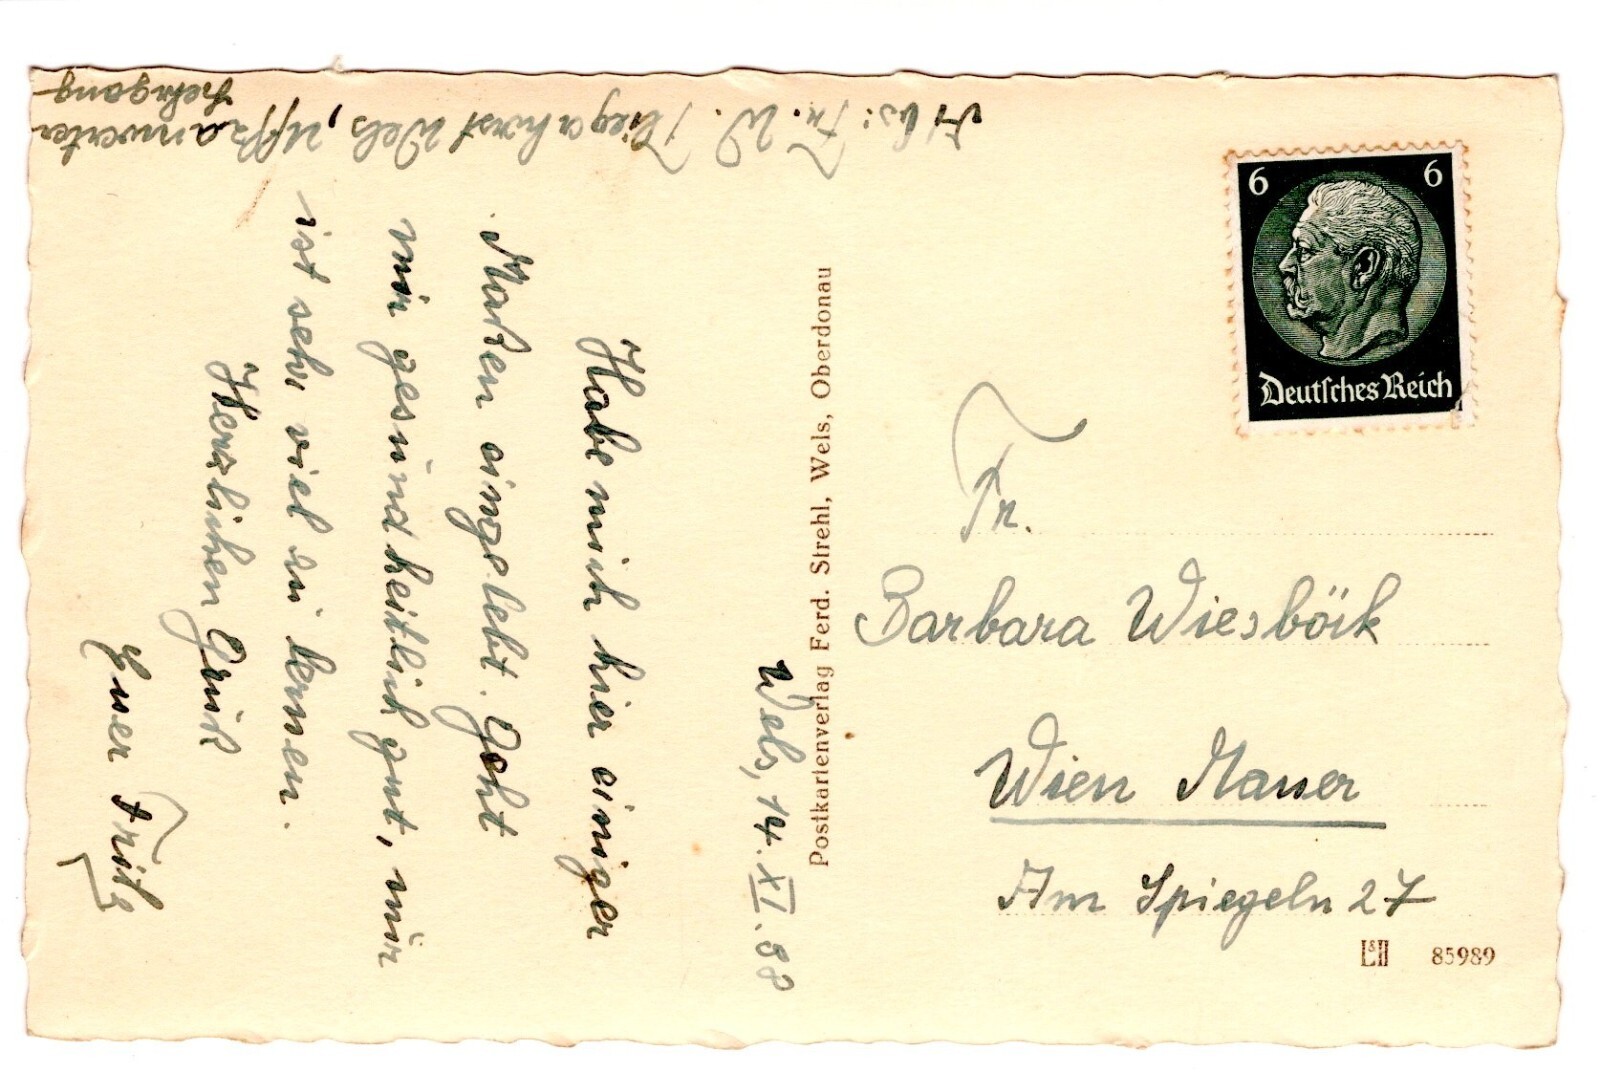 Abs: Fr. W. Fliegerhorst Wels, Uffzanwerter
Lehrgang
Wels, 14. XI. 38
Habe mich hier einiger
Maßen eingelebt. Geht
mir gesundheitlich gut, nur
ist sehr viel zu lernen.
Herzlichen Gruß
Euer Fritz
Postkartenverlag Ferd. Strehl, Wels, Oberdonau
6 6
Deutsches Reich
Fr.
Barbara Wiesböck
Wien Mauer
Am Spiegeln 27
L&H 85989